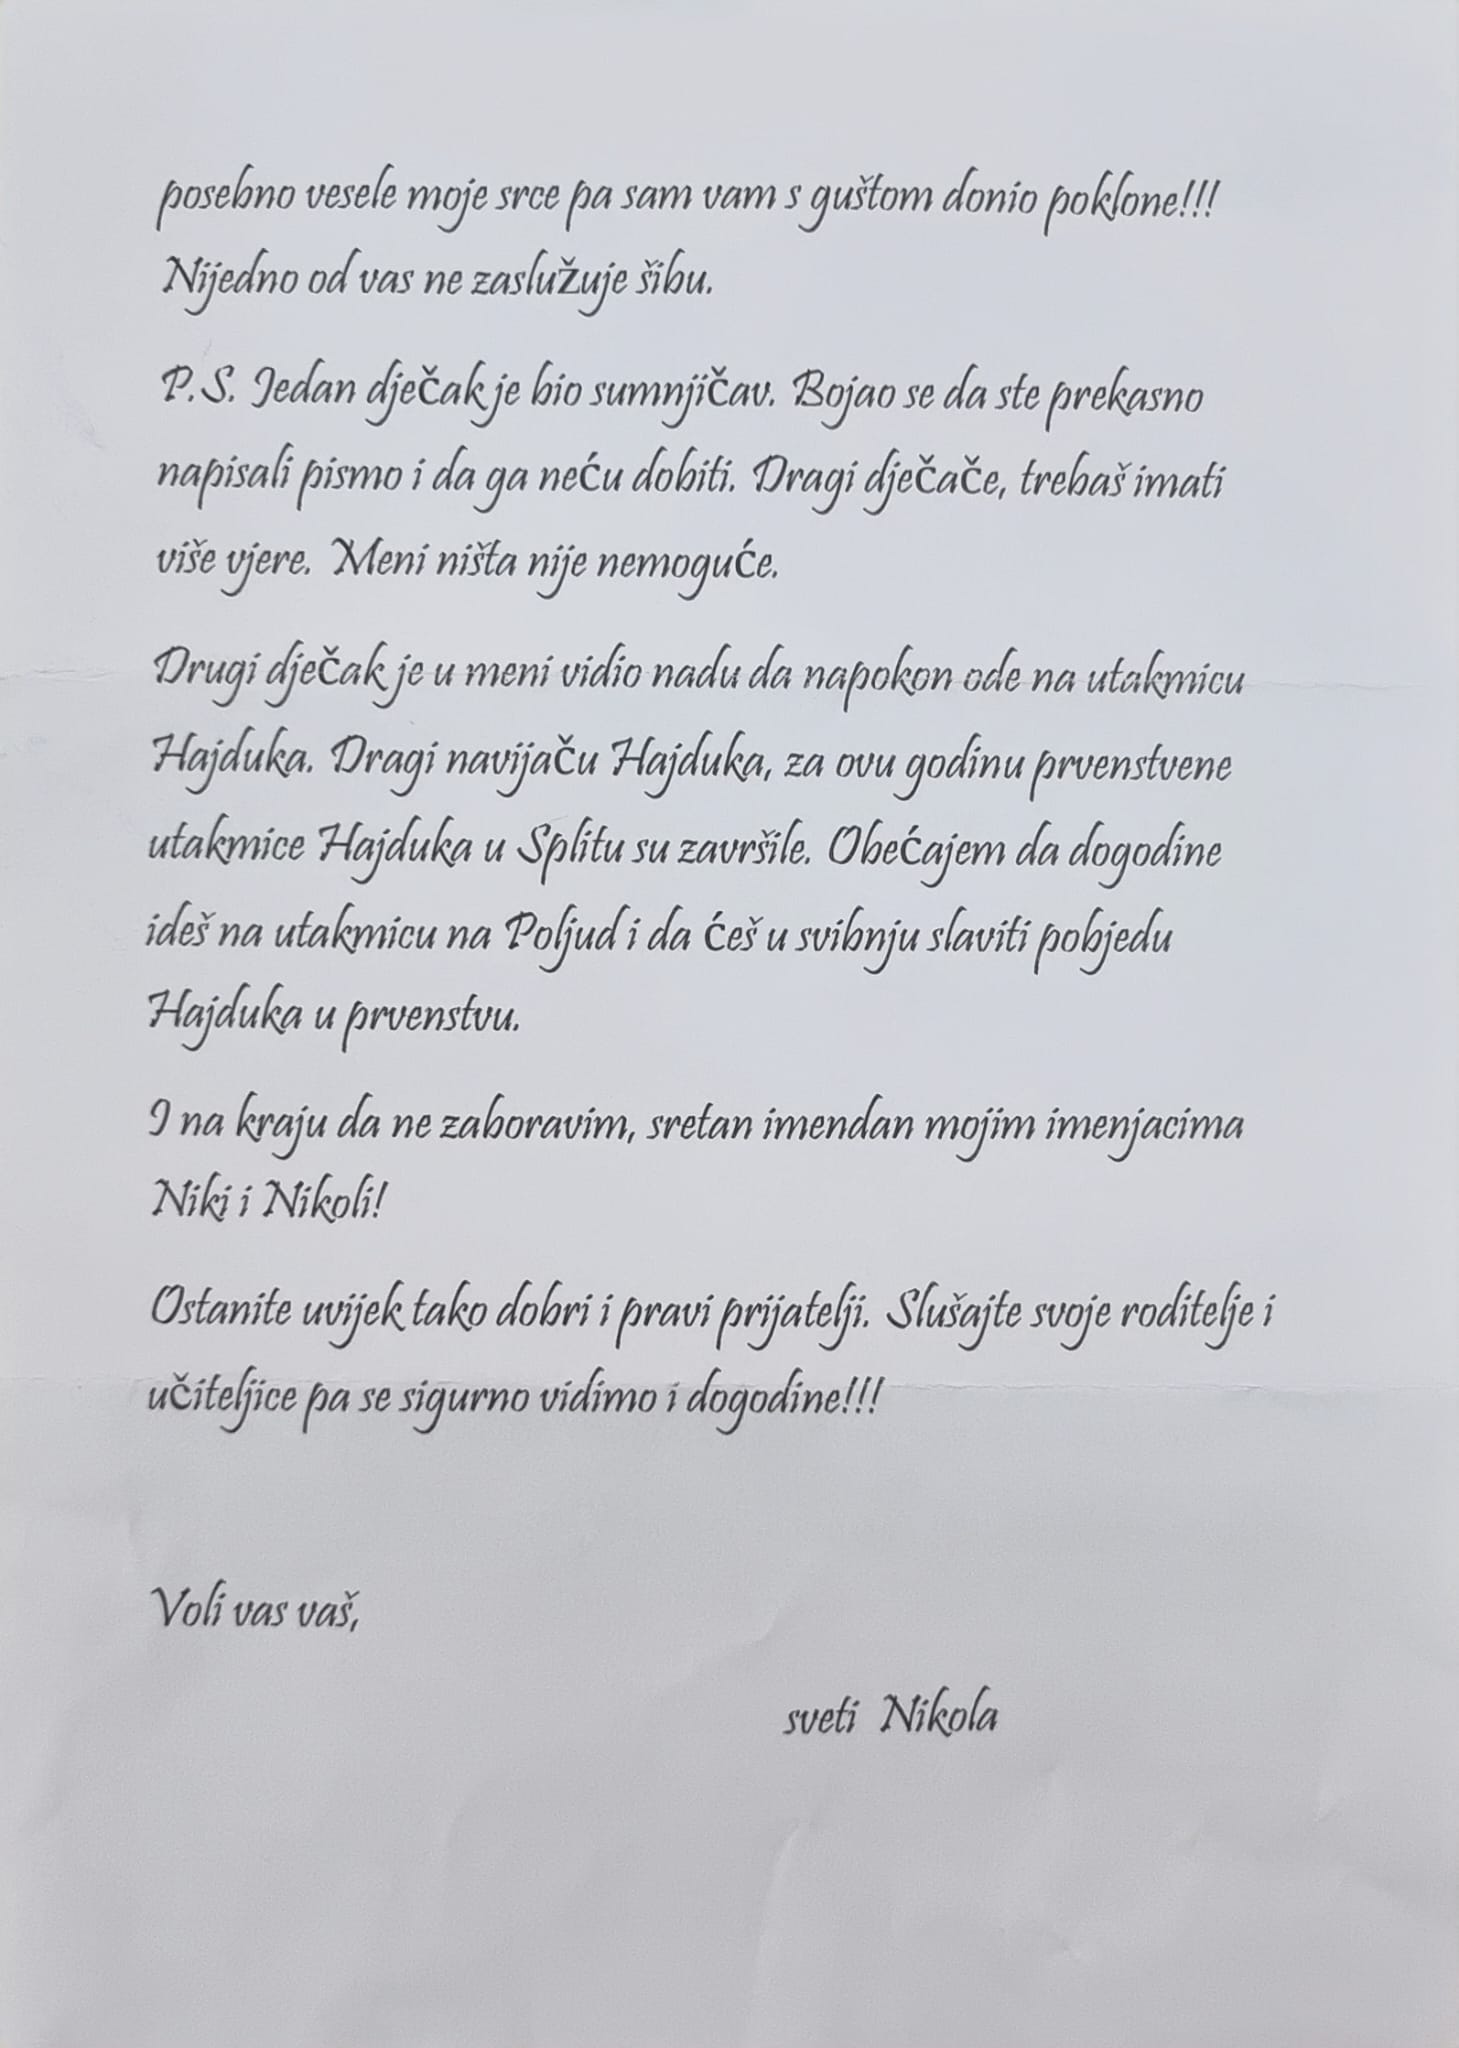 posebno vesele moje srce pa sam vam s guštom donio poklone!!!
Nijedno od vas ne zaslužuje šibu.
P.S. Jedan dječak je bio sumnjičav. Bojao se da ste prekasno
napisali pismo i da ga neću dobiti. Dragi dječače, trebaš imati
više vjere. Meni ništa nije nemoguće.
Drugi dječak je u meni vidio nadu da napokon ode na utakmicu
Hajduka. Dragi navijaču Hajduka, za ovu godinu prvenstvene
utakmice Hajduka u Splitu su završile. Obećajem da dogodine
ideš na utakmicu na Poljud i da ćeš u svibnju slaviti pobjedu
Hajduka u prvenstvu.
I na kraju da ne zaboravim, sretan imendan mojim imenjacima
Niki i Nikoli!
Ostanite uvijek tako dobri i pravi prijatelji. Slušajte svoje roditelje i
učiteljice pa se sigurno vidimo i dogodine!!!
Voli vas vaš,
sveti Nikola